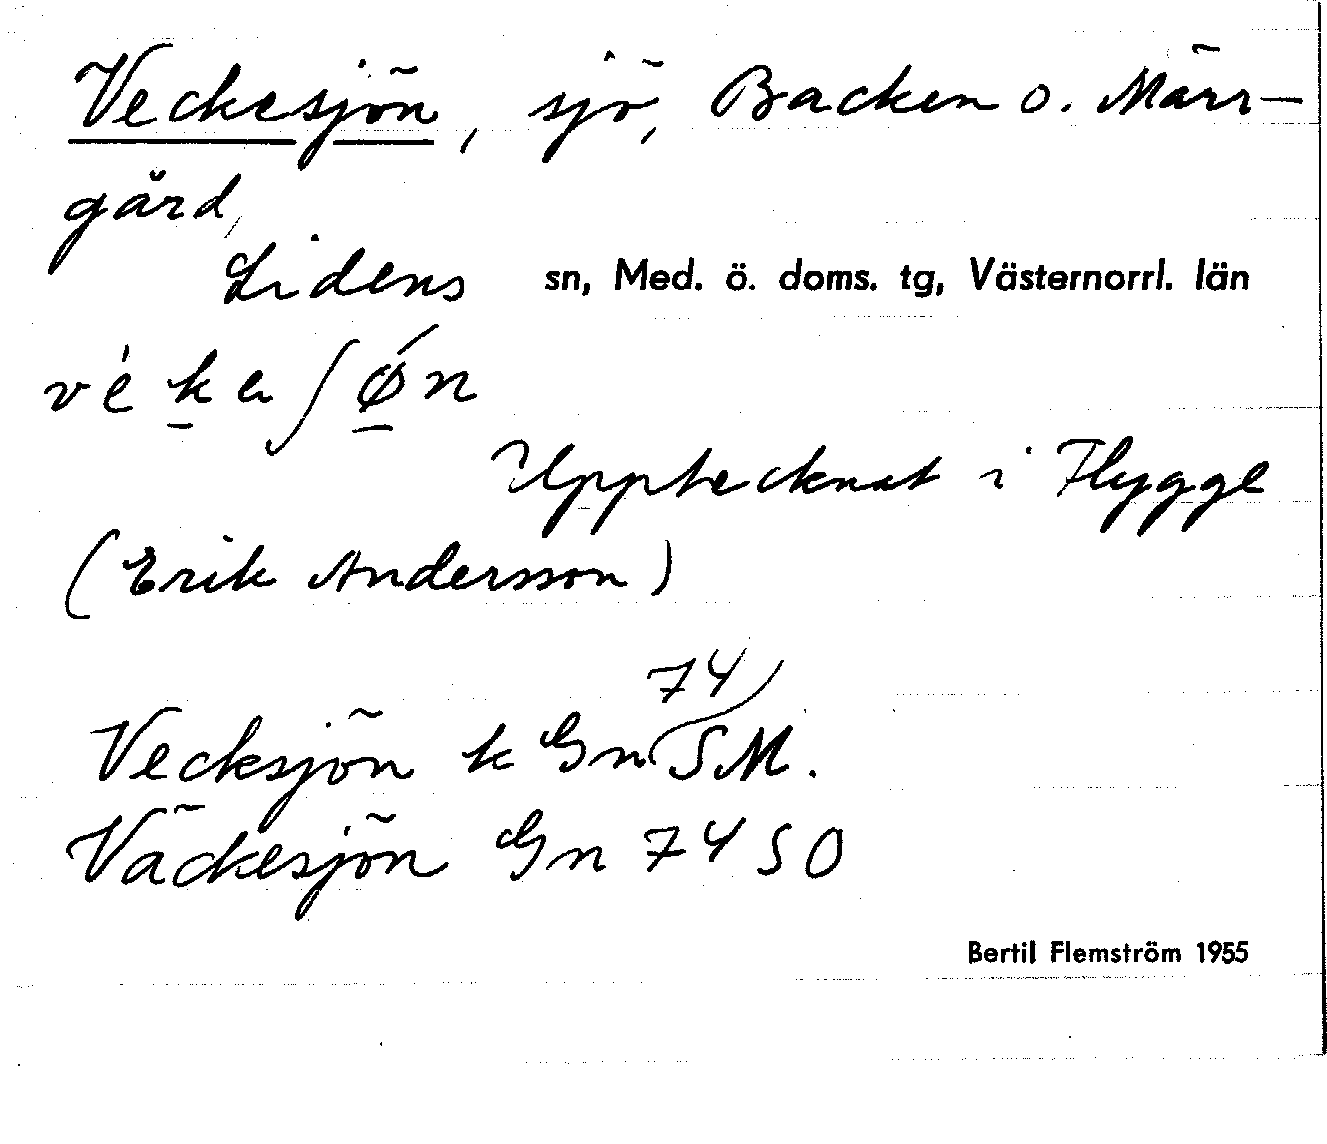 Veckesjön, sjö, Backen o. Märr-
gård,
Lidens sn, Med. ö. doms. tg, Västernorrl. län
ve̍k̲aʃǿ̲n
Upptecknat i Flygge
(Erik Andersson)
74
Vecksjön k Gn SM.
Väckesjön Gn 74 SO
Bertil Flemström 1955